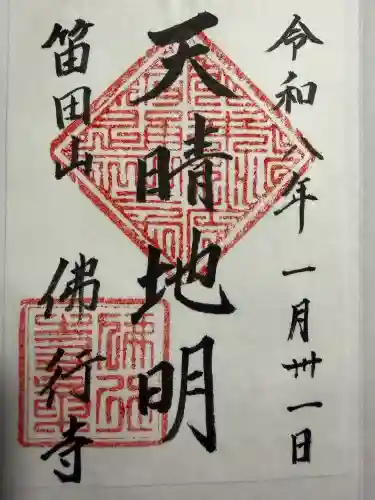 令和八年 一月卅一日
天晴地明
笛田山
佛行寺